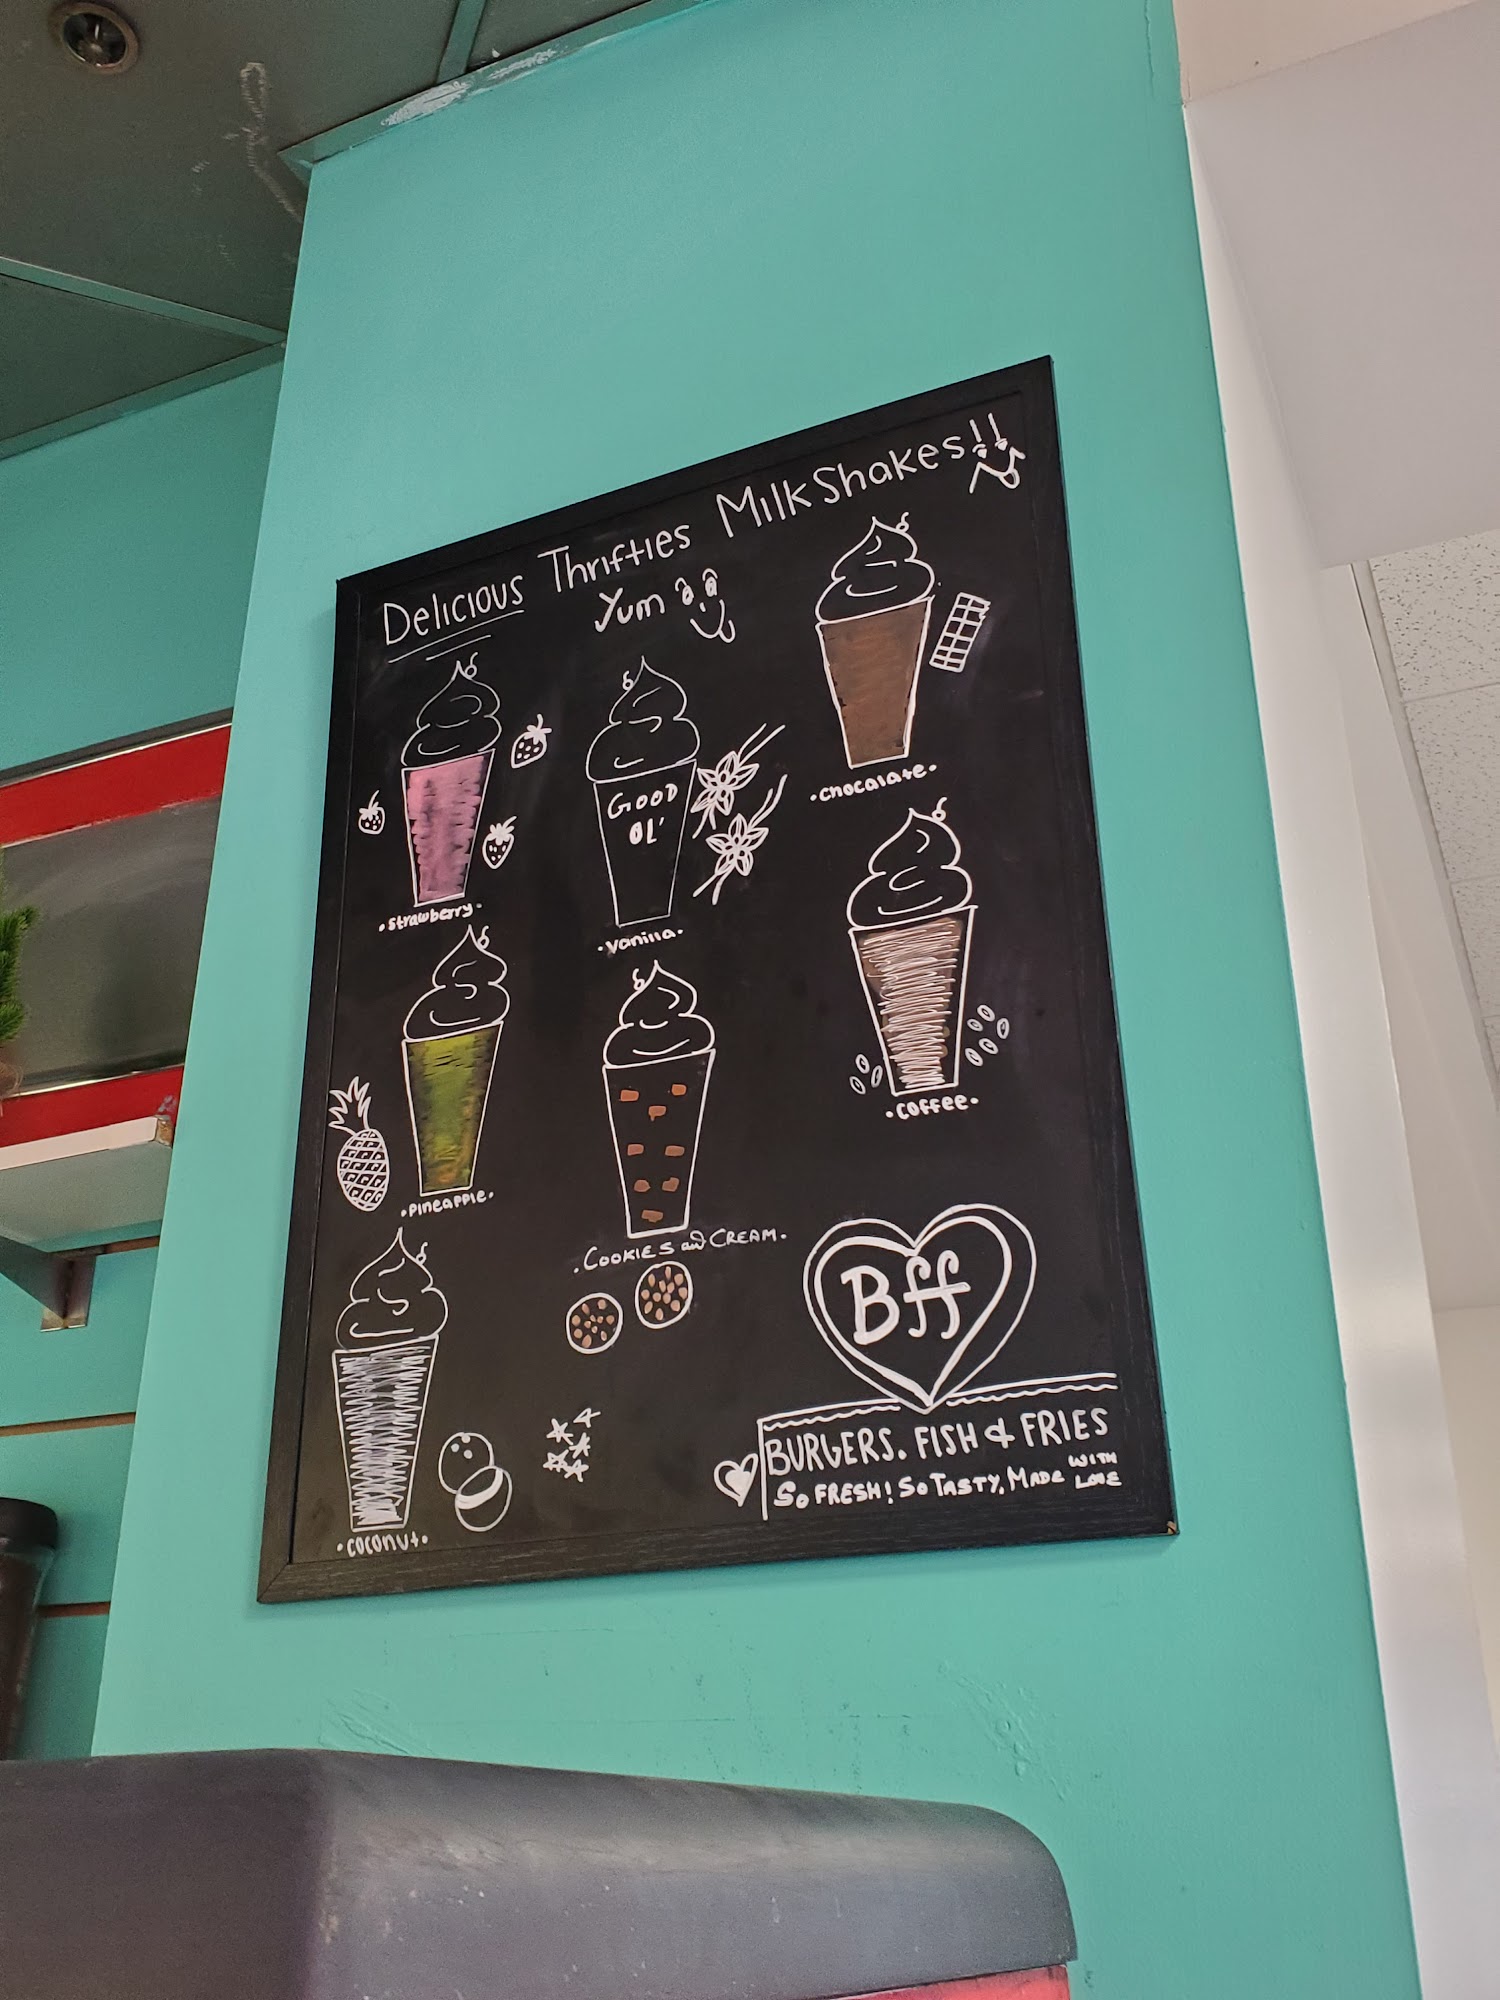 Delicious Thrifties MilkShakes!!
Yum
GOOD
OL'
•Strawberry•
•Vanilla•
•Chocalate•
•Pineapple•
•COOKIES and CREAM•
•Coffee•
•Coconut•
Bff
BURGERS. FISH & FRIES
SO FRESH! SO TASTY, MADE WITH LOVE